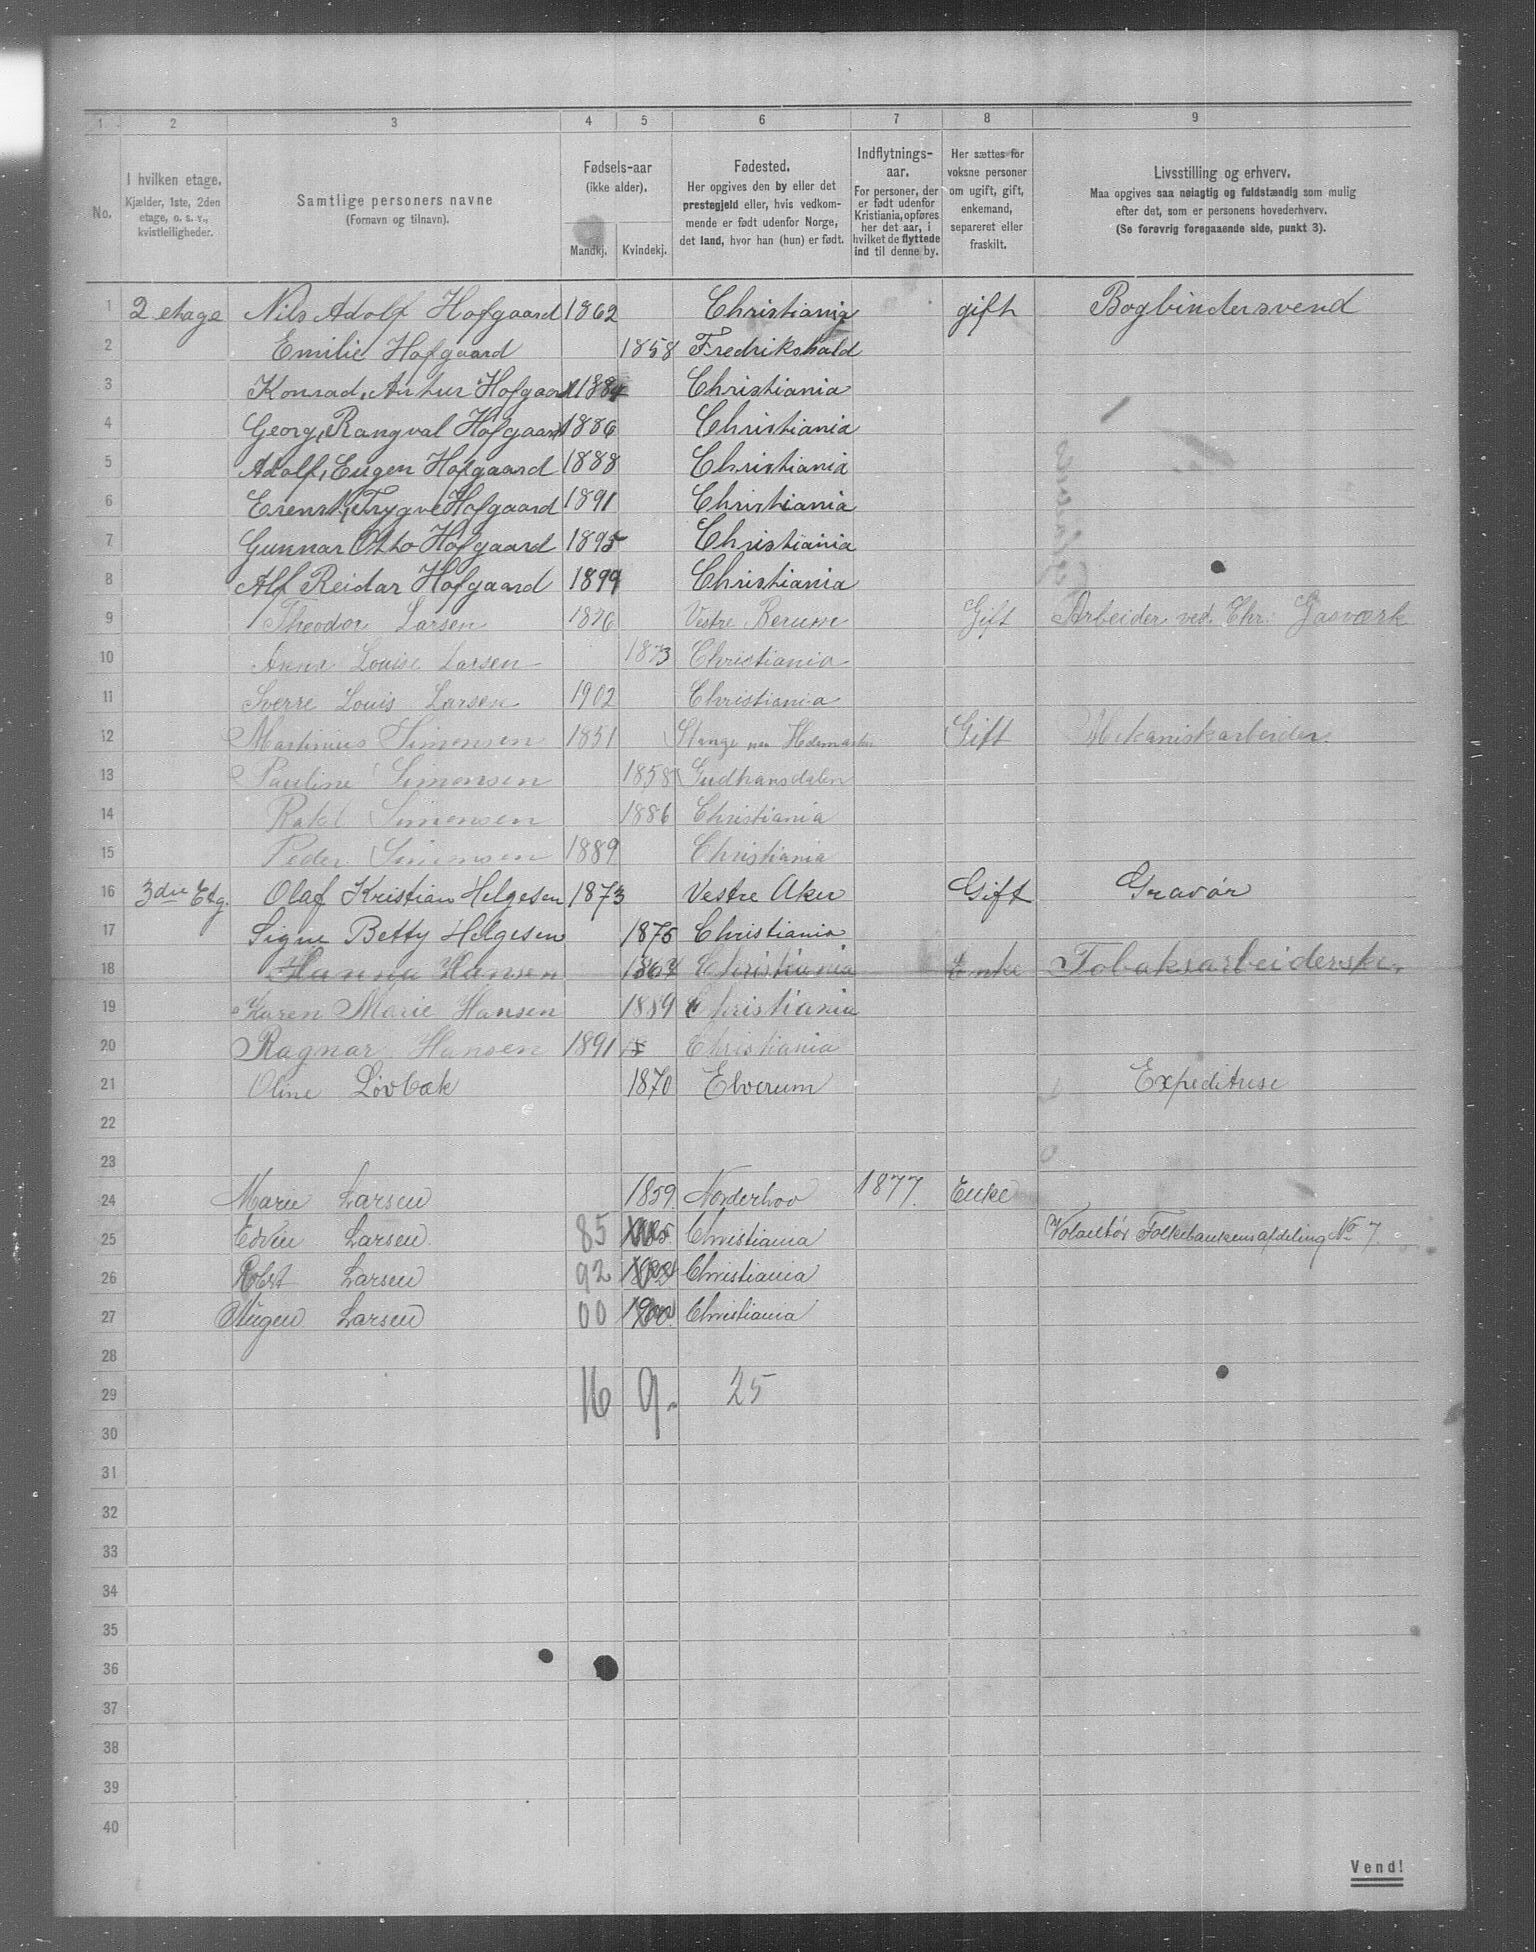 1 2 3 4 5 6 7 8 9
No.
I hvilken etage.
Kjælder, 1ste, 2den
etage, o. s. v.,
kvistleiligheder.
Samtlige personers navne
(Fornavn og tilnavn).
Fødsels-aar
(ikke alder).
Mandkj. Kvindekj.
Fødested.
Her opgives den by eller det
prestegjeld eller, hvis vedkom-
mende er født udenfor Norge,
det land, hvor han (hun) er født.
Indflytnings-
aar.
For personer, der
er født udenfor
Kristiania, opføres
her det aar, i
hvilket de flyttede
ind til denne by.
Her sættes for
voksne personer
om ugift, gift,
enkemand,
separeret eller
fraskilt.
Livsstilling og erhverv.
Maa opgives saa nøiagtig og fuldstændig som mulig
efter det, som er personens hovederhverv.
(Se forøvrig foregaaende side, punkt 3).
1 2 etage Nils Adolf Hofgaard 1862 Christiania gift Bogbindersvend
2 Emilie Hofgaard 1858 Fredrikshald
3 Konrad, Artur Hofgaard 1884 Christiania
4 Georg, Rangval Hofgaard 1886 Christiania
5 Adolf, Eugen Hofgaard 1888 Christiania
6 Trygve Hofgaard 1891 Christiania
7 Gunnar Otto Hofgaard 1895 Christiania
8 Alf Reidar Hofgaard 1899 Christiania
9 Theodor Larsen 1876 Vestre Berum Gift Arbeider ved Chr. Gasværk
10 Anna Louise Larsen 1873 Christiania
11 Sverre Louis Larsen 1902 Christiania
12 Martinius Simensen 1851 Stange Hedemarken Gift Mekaniskarbeider
13 Pauline Simensen 1858 Gudbransdalen
14 Rakel Simensen 1886 Christiania
15 Peder Simensen 1889 Christiania
16 3die Etg. Olaf Kristian Helgesen 1873 Vestre Aker Gift Gravør
17 Signe Betty Helgesen 1875 Christiania
18 Hanna Hansen 1864 Christiania Enke Tobaksarbeiderske.
19 Karen Marie Hansen 1889 Christiania
20 Ragnar Hansen 1891 Christiania
21 Oline Løvbak 1870 Elverum Expeditrise
22
23
24 Marie Larsen 1859 Norderhov 1877. Enke
25 Edvin Larsen 85 Christiania Volontør Folkebankens afdeling No 7.
26 Robert Larsen 92 Christiania
27 Larsen 00 1900 Christiania
28
29 16 9. 25
30
31
32
33
34
35
36
37
38
39
40
Vend!